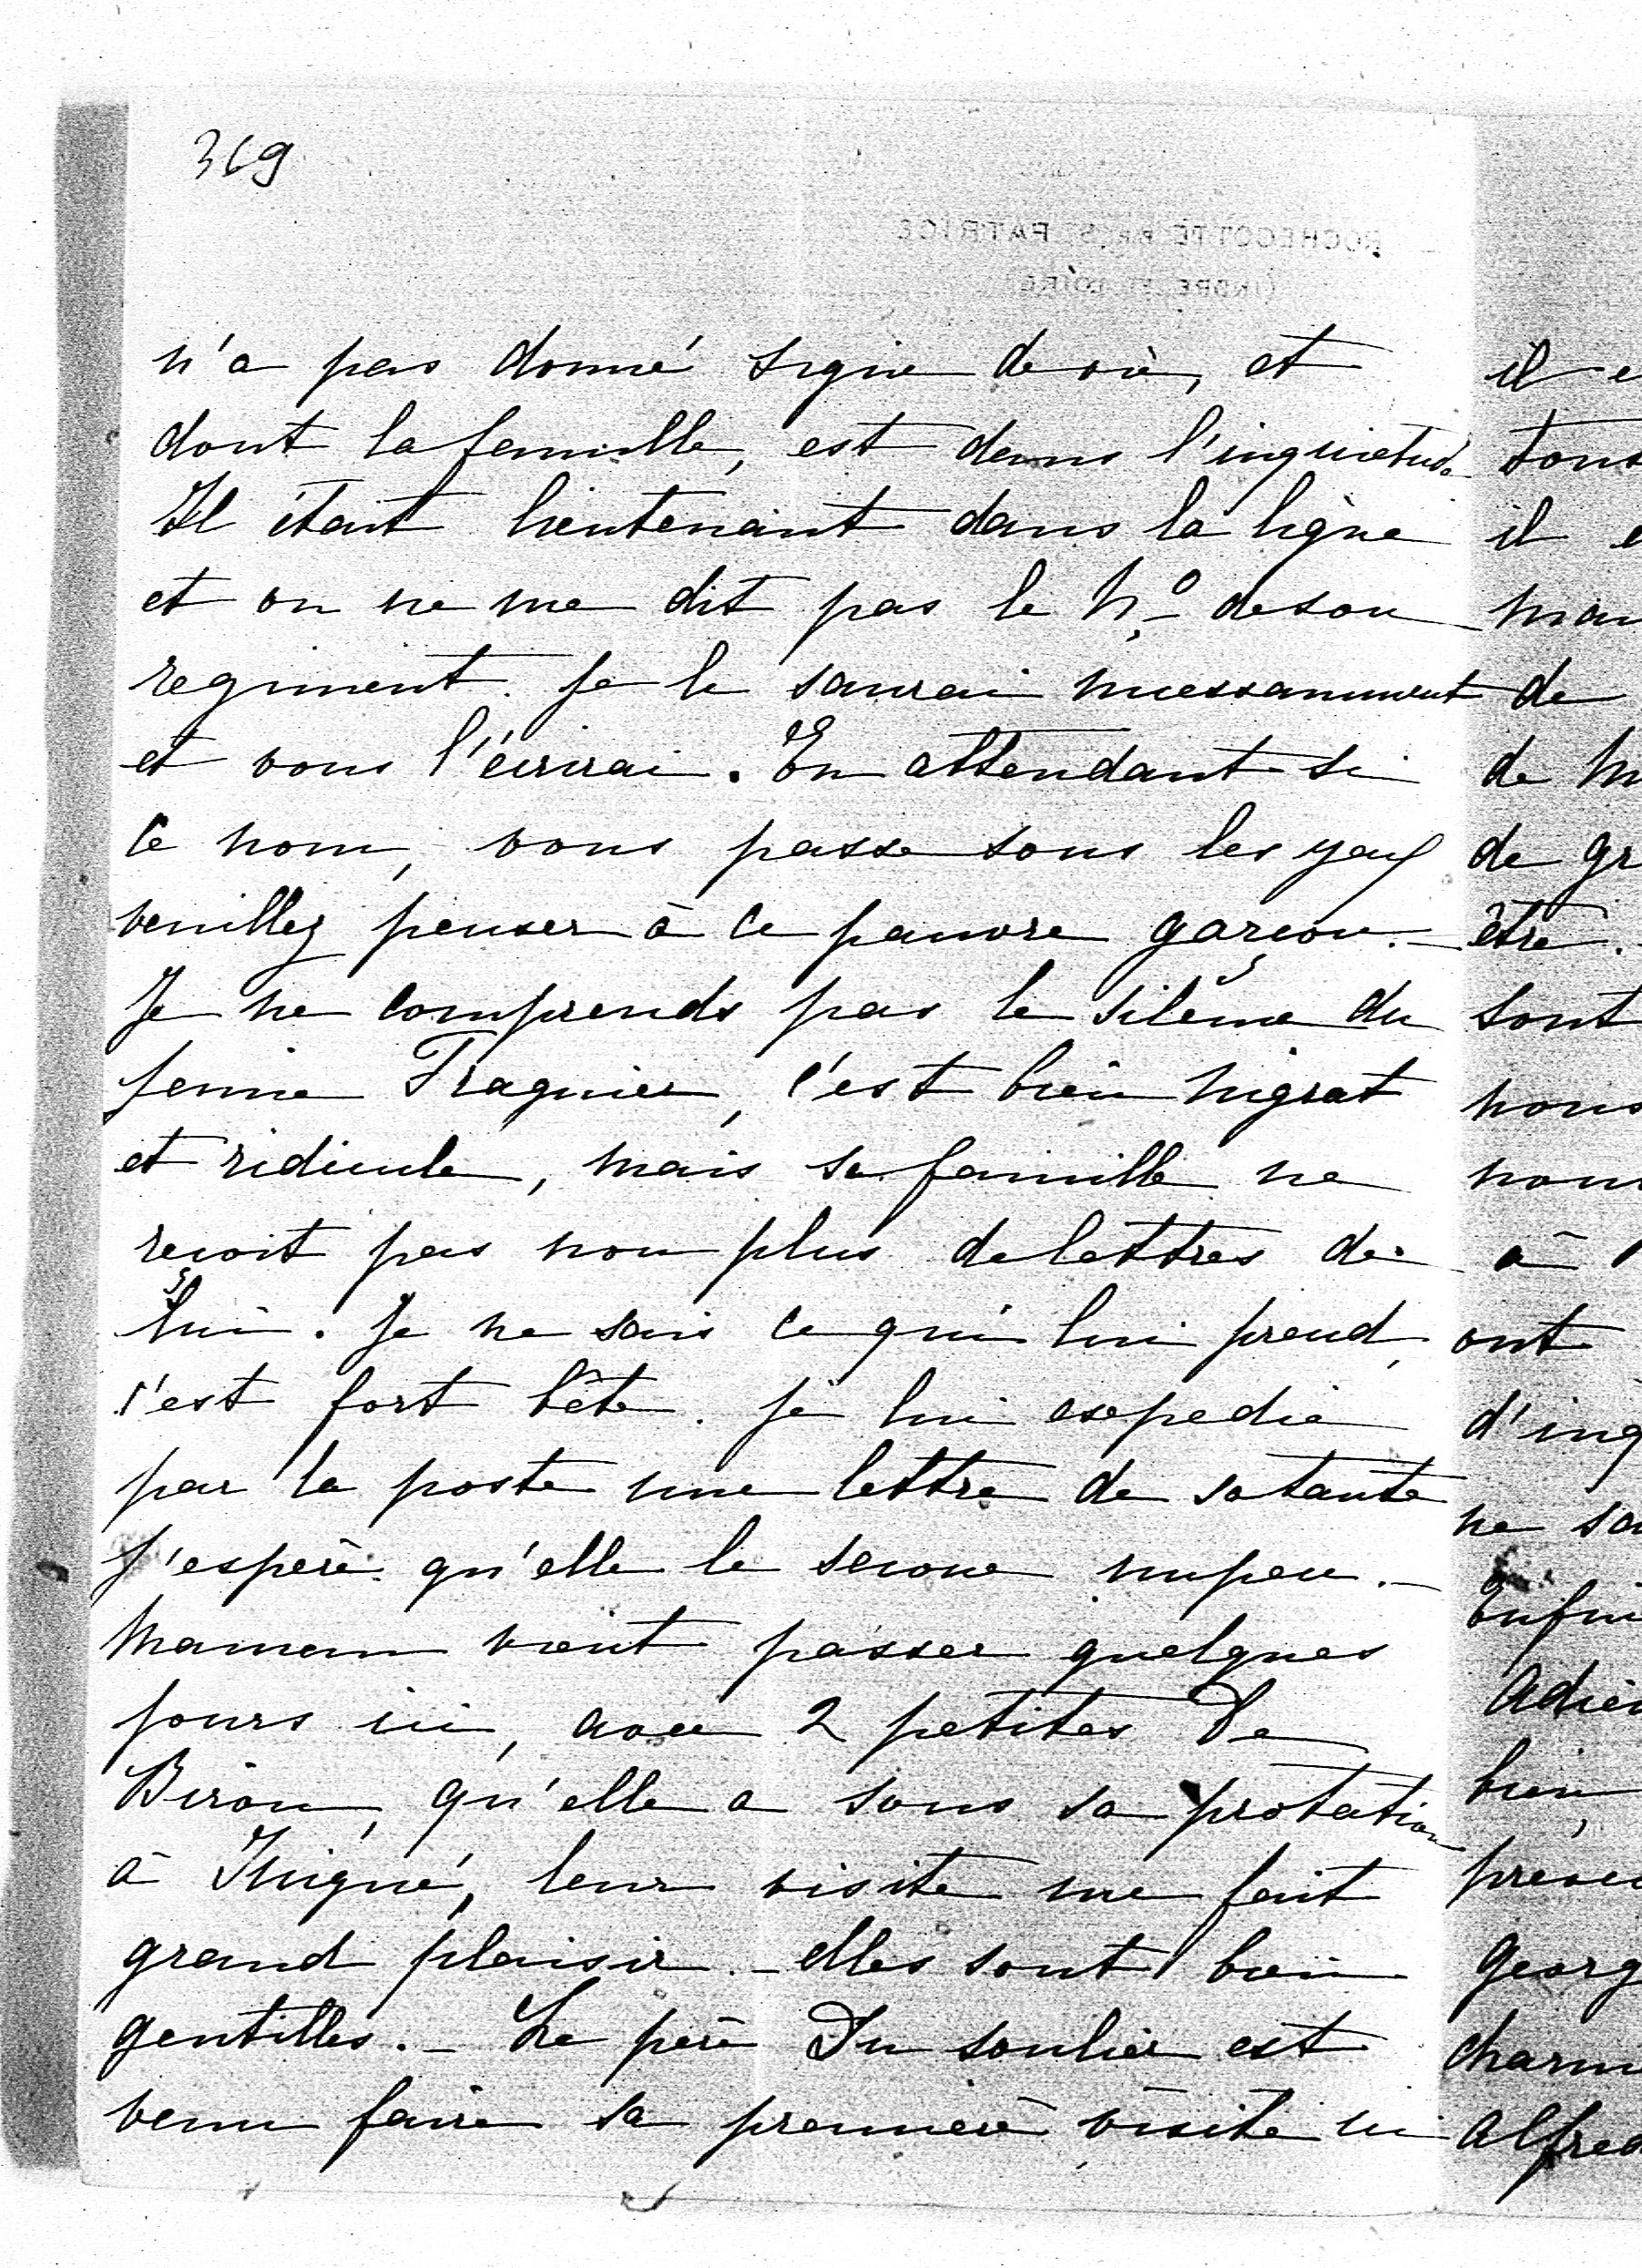 369
ROCHECOTTE PAR ST PATRICE
(INDRE ET LOIRE)
n'a pas donné signe de vie, et
dont la famille, est dans l'inquietude
Il était lieutenant dans la ligne
et on ne me dit pas le No de son
regiment. Je le saurai incessamment
et vous l'écrirai. En attendant si
ce nom, vous passe sous les yeux
veuillez penser à ce pauvre garçon. –
Je ne comprends pas le silence du
jeune Tragnier, c'est bien ingrat
et ridicule, mais sa famille ne
reçoit pas non plus de lettres de
lui. Je ne sais ce qui lui prend,
c'est fort bête. Je lui expedie
par la poste une lettre de sa tante
j'espère qu'elle le secoue un peu. –
Maman vient passer quelques
jours ici, avec 2 petites De
Biron, qu'elle a sous sa protetion
à Thigné, leur visite me fait
grand plaisir. – elles sont bien
gentilles. – Le père Du soulier est
venu faire sa première visite ici
il e
tous
il e
mau
de
de m
de gr
être.
sont
nous
nous
à
ont
d'inq
ne sa
Enfin
Adieu
bien
Georg
charm
Alfred